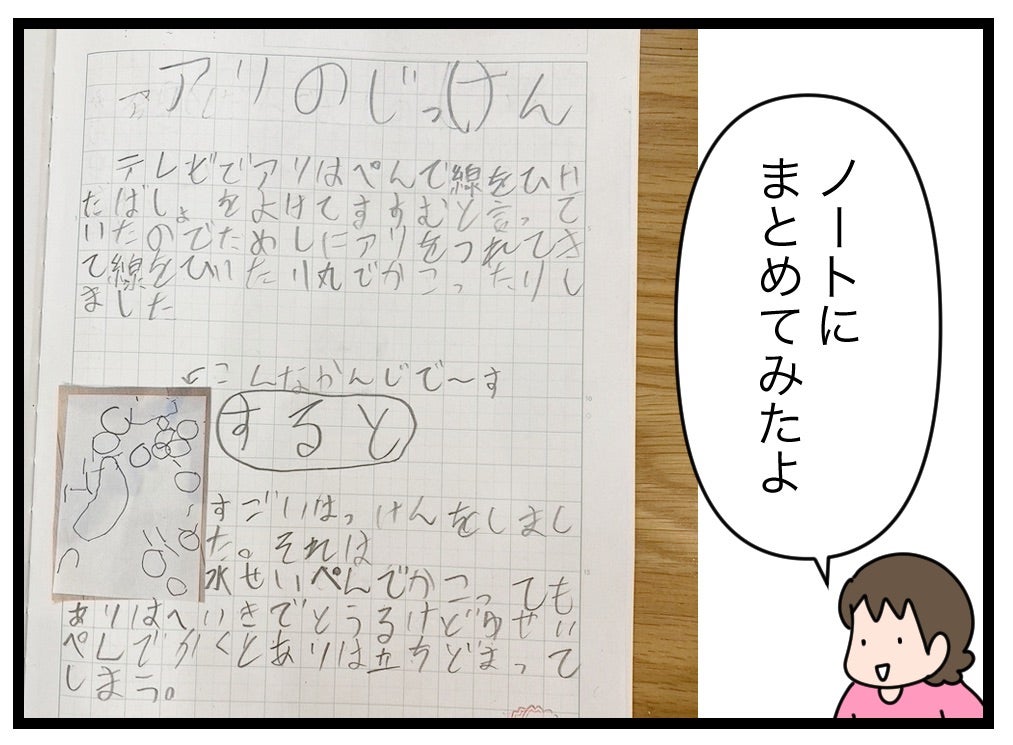 アリのじっけん
テレビでアリはぺんで線をひい
たばしょをよけてすすむと言って
いたのでためしにアリをつれてき
て線をひいたり丸でかこったりし
ました
←こんなかんじで〜す
すると
すごいはっけんをしまし
た。それは
水せいぺんでかこっても
ありはへいきでとうるけどゆせい
ペンでかくとありは立ちどまって
しまう。
ノートに
まとめてみたよ